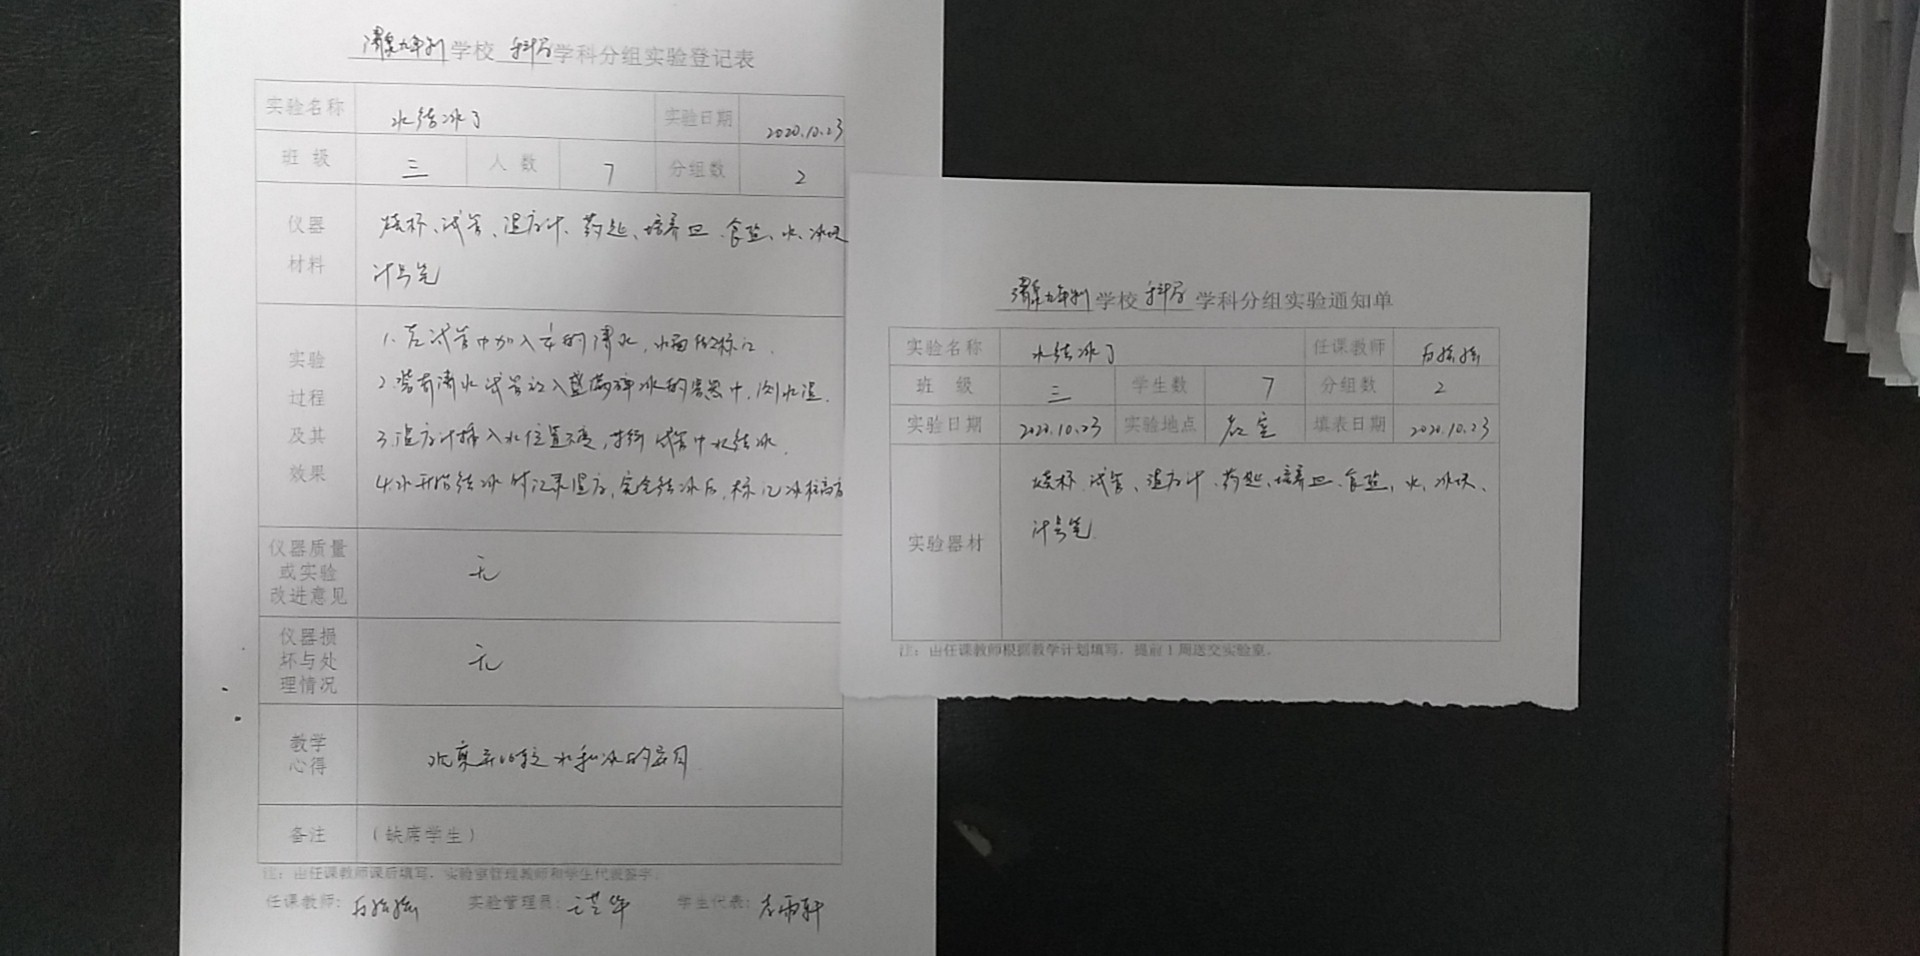 清泉九年制学校 科学 学科分组实验登记表
实验名称 水结冰了 实验日期 2020.10.23
班级 三 人数 7 分组数 2
仪器材料
烧杯、试管、温度计、药匙、培养皿、食盐、水、冰块
记号笔
实验过程及其效果
1.在试管中加入 的清水,水面做标记.
2.装有清水试管放入盛满碎冰的容器中,测水温.
3.温度计插入水位置不变, 试管中水结冰.
4.水开始结冰时记录温度,完全结冰后,标记冰柱高度
仪器质量或实验改进意见 无
仪器损坏与处理情况 无
教学心得
观察并比较水和冰的
备注 (缺席学生)
注:由任课教师课后填写,实验室管理教师和学生代表签字。
任课教师: 实验管理员: 学生代表:
清泉九年制学校 科学 学科分组实验通知单
实验名称 水结冰了 任课教师
班级 三 学生数 7 分组数 2
实验日期 2020.10.23 实验地点 教室 填表日期 2020.10.23
实验器材
烧杯、试管、温度计、药匙、培养皿、食盐、水、冰块、
记号笔
注:由任课教师根据教学计划填写,提前1周送交实验室。